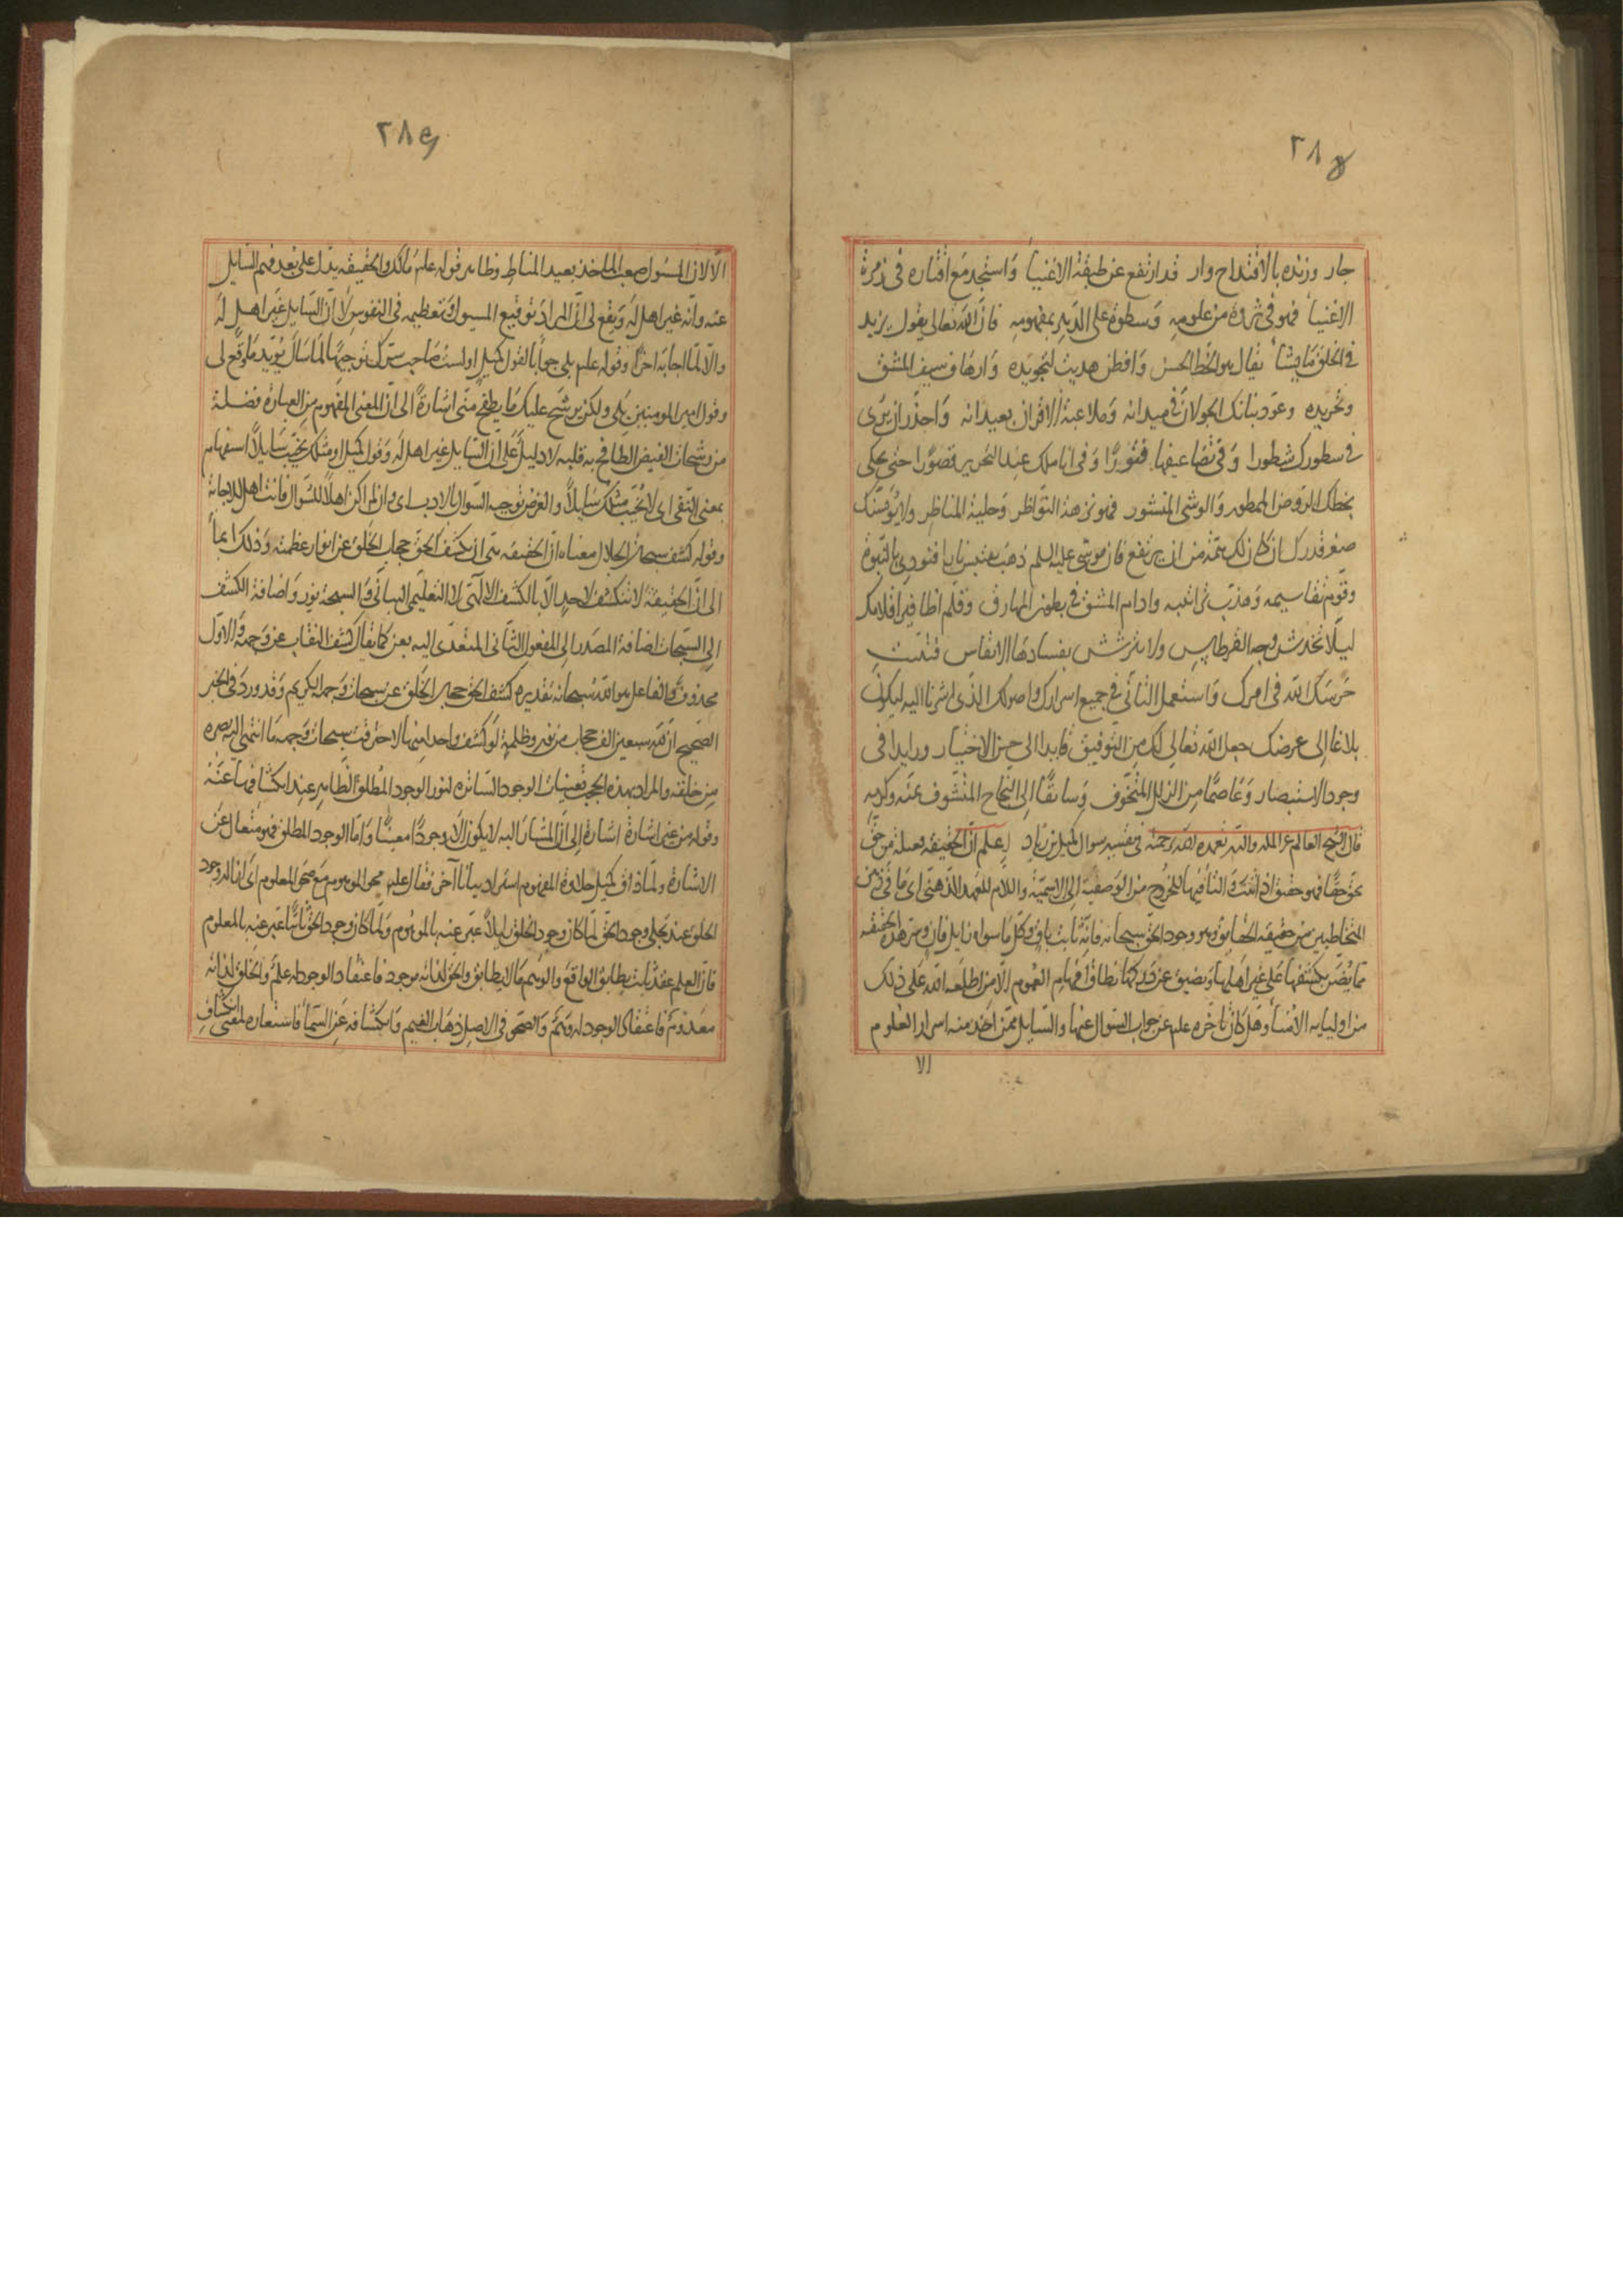 ٢٨٤
جار وزنده بالاقتداح وار قد ارتفع عن طبقة الاغنيا واستجد مع اقتاره في زمرة
الاغنيا فهو في ثروة من علومه وسطوة على الدهر بمفهومه فان الله تعالى يقول يزيد
في الخلق ما يشا يقال هو الخط الحسن وافطن هديت لتجويده وارهاف سيف المشق
وتجريده وعود بنانك الجولان في ميدانه وملاعبة الاقران بعيدانه واحذر ان يرى
في سطورك شطورا وفي تضاعيفها فتورا وفي اناملك عند التحرير قصورا حتى يحكى
بخطك الروض الممطور والوشي المنشور فهو نزهة النواظر وحلية المناظر ولا يؤيسنك
صغر قدرك ان كان لك همة من ان يرتفع فان موسى عليه السلم ذهب يقتبس نارا فنودي بالنبوة
وقوم تقاسيمه وهذب تراتيبه وادام المشق في بطون المهارق وقلم اظافير اقلامك
ليلا تخدش وجه القرطاس ولا يترشش بفسادها الانقاس فتثبت
حرسك الله في امرك واستعمل التأني في جميع اسرارك واصولك الذي اشرنا اليه ليكون
بلاغا الى غرضك جعل الله تعالى لك من التوفيق قايدا الى حيز الاختيار ورايدا في
وجود الاستبصار وعاصما من الزلل المتخوف وسايقا الى النجاح المتشوف بمنه وكرمه
قال الشيخ العالم عز المله والدين تغمده الله برحمته في تفسير سوال كميل بن زياد اعلم ان الحقيقة فعيلة من حق
يحق حقا فهو حقيق اذا ثبت والتا فيها للخروج من الوصفية الى الاسمية واللام للعهد الذهني اى ما في ذهن
المتخاطبين من حقيقة الحقايق وهو وجود الحق سبحانه فانه ثابت باق وكل ما سواه زايل فان ومن هذه الحقيقة
مما يضن بكشفها على غير اهلها ويضيق عن دركها نطاق افهام العموم الا من اطلعه الله على ذلك
من اوليايه الامنا وهل كان تاخره علم عن جواب السوال عنها والسايل ممن اخذ منه اسرار العلوم
الا
٢٨٥
الا لان المسؤل صعب الماخذ بعيد المناط وظاهر قوله علم مالك والحقيقة يدل على بعد فهم السايل
عنه وانه غير اهل له ويقع لي ان المراد توقيع المسول وتعظيمه في النفوس لا ان السايل غير اهل له
والا لما اجابه اخرا وقوله علم بلى جوابا لقول كميل اولست صاحب سرك توجيها لما سال يؤيد ما وقع لي
وقول امير المومنين بلى ولكن يرشح عليك ما يطفح مني اشارة الى ان المعنى المفهوم من العبارة فضلة
من رشحات الفيض الطافح به قلبه لا دليل على ان السايل غير اهل له وقول كميل او مثلك يخيب سايلا استفهام
بمعنى النفي اى لا يخيب مثلك سايلا والغرض توجيه السوال بالادب اى وان لم اكن اهلا للسؤال فانت اهل للاجابة
وقوله كشف سبحات الجلال معناه ان الحقيقة هي ان يكشف الحق حجاب الخلق عن انوار عظمته وذلك ايما
الى ان الحقيقة لا تنكشف لاحد الا بالكشف الالهي لا التعليمي البياني والسبحة نور واضافة الكشف
الى السبحات اضافة المصدر الى المفعول الثاني المتعدى اليه بعن كما يقال كشف النقاب عن وجهه والاول
محذوف والفاعل هو الله سبحانه تقديره كشف الحق حجاب الخلق عن سبحات وجهه الكريم وقد ورد في الخبر
الصحيح ان لله سبعين الف حجاب من نور وظلمة لو كشف واحد منها لاحرقت سبحات وجهه ما انتهى اليه بصره
من خلقه والمراد بهذه الحجب تعينات الوجود الساترة لنور الوجود المطلق الظاهر عند انكشافها عنه
وقوله من غير اشارة اشارة الى ان المشار اليه لا يكون الا وجودا معينا واما الوجود المطلق فهو متعال عن
الاشارة ولما ذاق كميل حلاوة المفهوم استزاد بيانا آخر فقال علم محو الموهوم مع صحو المعلوم اى ازالة وجود
الخلق عند تجلى وجود الحق لما كان وجود الخلق زايلا عبر عنه بالموهوم ولما كان وجود الحق ثابتا عبر عنه بالمعلوم
فان العلم عقد ثابت يطابق الواقع والوهم ما لا يطابق والحق لذاته موجود فاعتقاد الوجود له علم والخلق لذاته
معدوم فاعتقاد الوجود له وهم والصحو في الاصل ذهاب الغيم وانكشافه عن السما فاستعاره لمعنى انكشاف